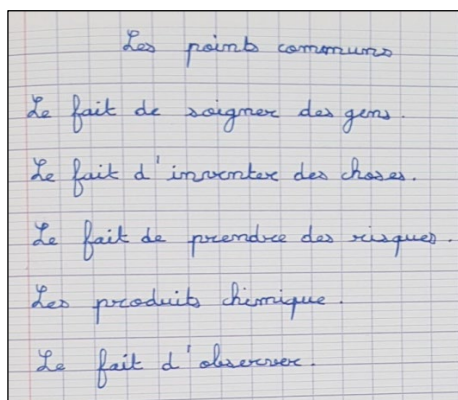 Les points communs
Le fait de soigner des gens.
Le fait d'inventer des choses.
Le fait de prendre des risques.
Les produits chimique.
Le fait d'observer.